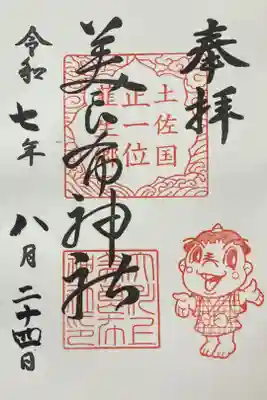 奉拝
土佐国
正一位
美良布神社
令和七年
八月二十四日